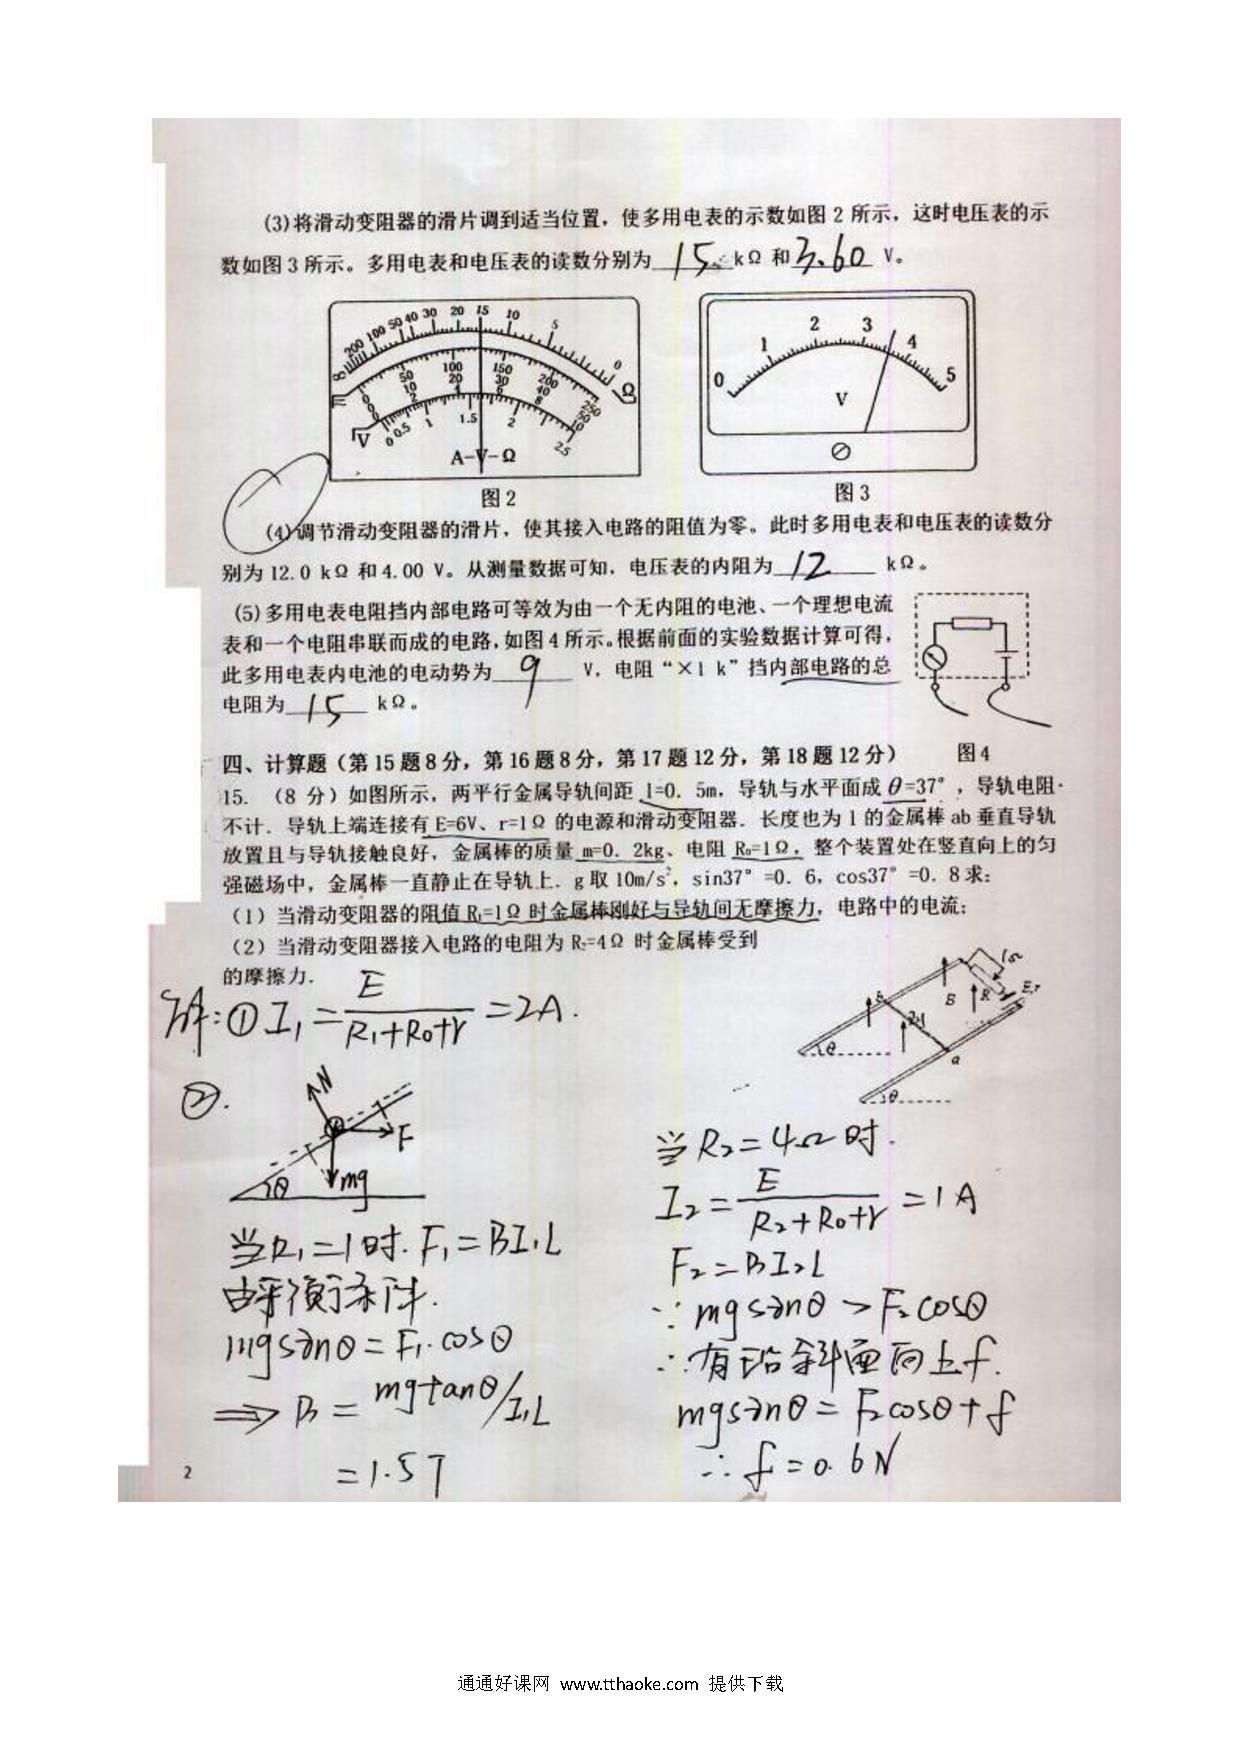 (3)将滑动变阻器的滑片调到适当位置，使多用电表的示数如图 2 所示，这时电压表的示
数如图 3 所示。多用电表和电压表的读数分别为 15 kΩ 和 3.60 V。
200 100 50 40 30 20 15 10 5 0
∞ Ω
0 50 100 150 200 250
0 10 20 30 40 50
0 2 4 6 8 10
V 0 0.5 1 1.5 2 2.5
A-V-Ω
图 2
0 1 2 3 4 5
V
图 3
(4)调节滑动变阻器的滑片，使其接入电路的阻值为零。此时多用电表和电压表的读数分
别为 12.0 kΩ 和 4.00 V。从测量数据可知，电压表的内阻为 12 kΩ。
(5)多用电表电阻挡内部电路可等效为由一个无内阻的电池、一个理想电流
表和一个电阻串联而成的电路,如图 4 所示。根据前面的实验数据计算可得，
此多用电表内电池的电动势为 9 V，电阻“×1 k”挡内部电路的总
电阻为 15 kΩ。
图 4
四、计算题（第 15 题 8 分，第 16 题 8 分，第 17 题 12 分，第 18 题 12 分）
15. （8 分）如图所示，两平行金属导轨间距 l=0. 5m，导轨与水平面成 θ=37°，导轨电阻
不计．导轨上端连接有 E=6V、r=1Ω 的电源和滑动变阻器．长度也为 l 的金属棒 ab 垂直导轨
放置且与导轨接触良好，金属棒的质量 m=0. 2kg、电阻 R₀=1Ω，整个装置处在竖直向上的匀
强磁场中，金属棒一直静止在导轨上．g 取 10m/s²，sin37°=0. 6，cos37°=0. 8 求：
（1）当滑动变阻器的阻值 R₁=1Ω 时金属棒刚好与导轨间无摩擦力，电路中的电流；
（2）当滑动变阻器接入电路的电阻为 R₂=4Ω 时金属棒受到
的摩擦力．
解：① I₁ = E/(R₁+R₀+r) = 2A.
b B R 1Ω E,r
a
θ
θ
②.
N
F
mg
θ
当R₁=1时. F₁=BI₁L
由平衡条件.
mgsinθ=F₁·cosθ
⇒ B = mgtanθ/I₁L
=1.5T
当 R₂=4Ω 时.
I₂ = E/(R₂+R₀+r) = 1A
F₂=BI₂L
∵ mgsinθ > F₂cosθ
∴ 有沿斜面向上 f.
mgsinθ = F₂cosθ + f
∴ f = 0.6N
2
通通好课网 www.tthaoke.com 提供下载